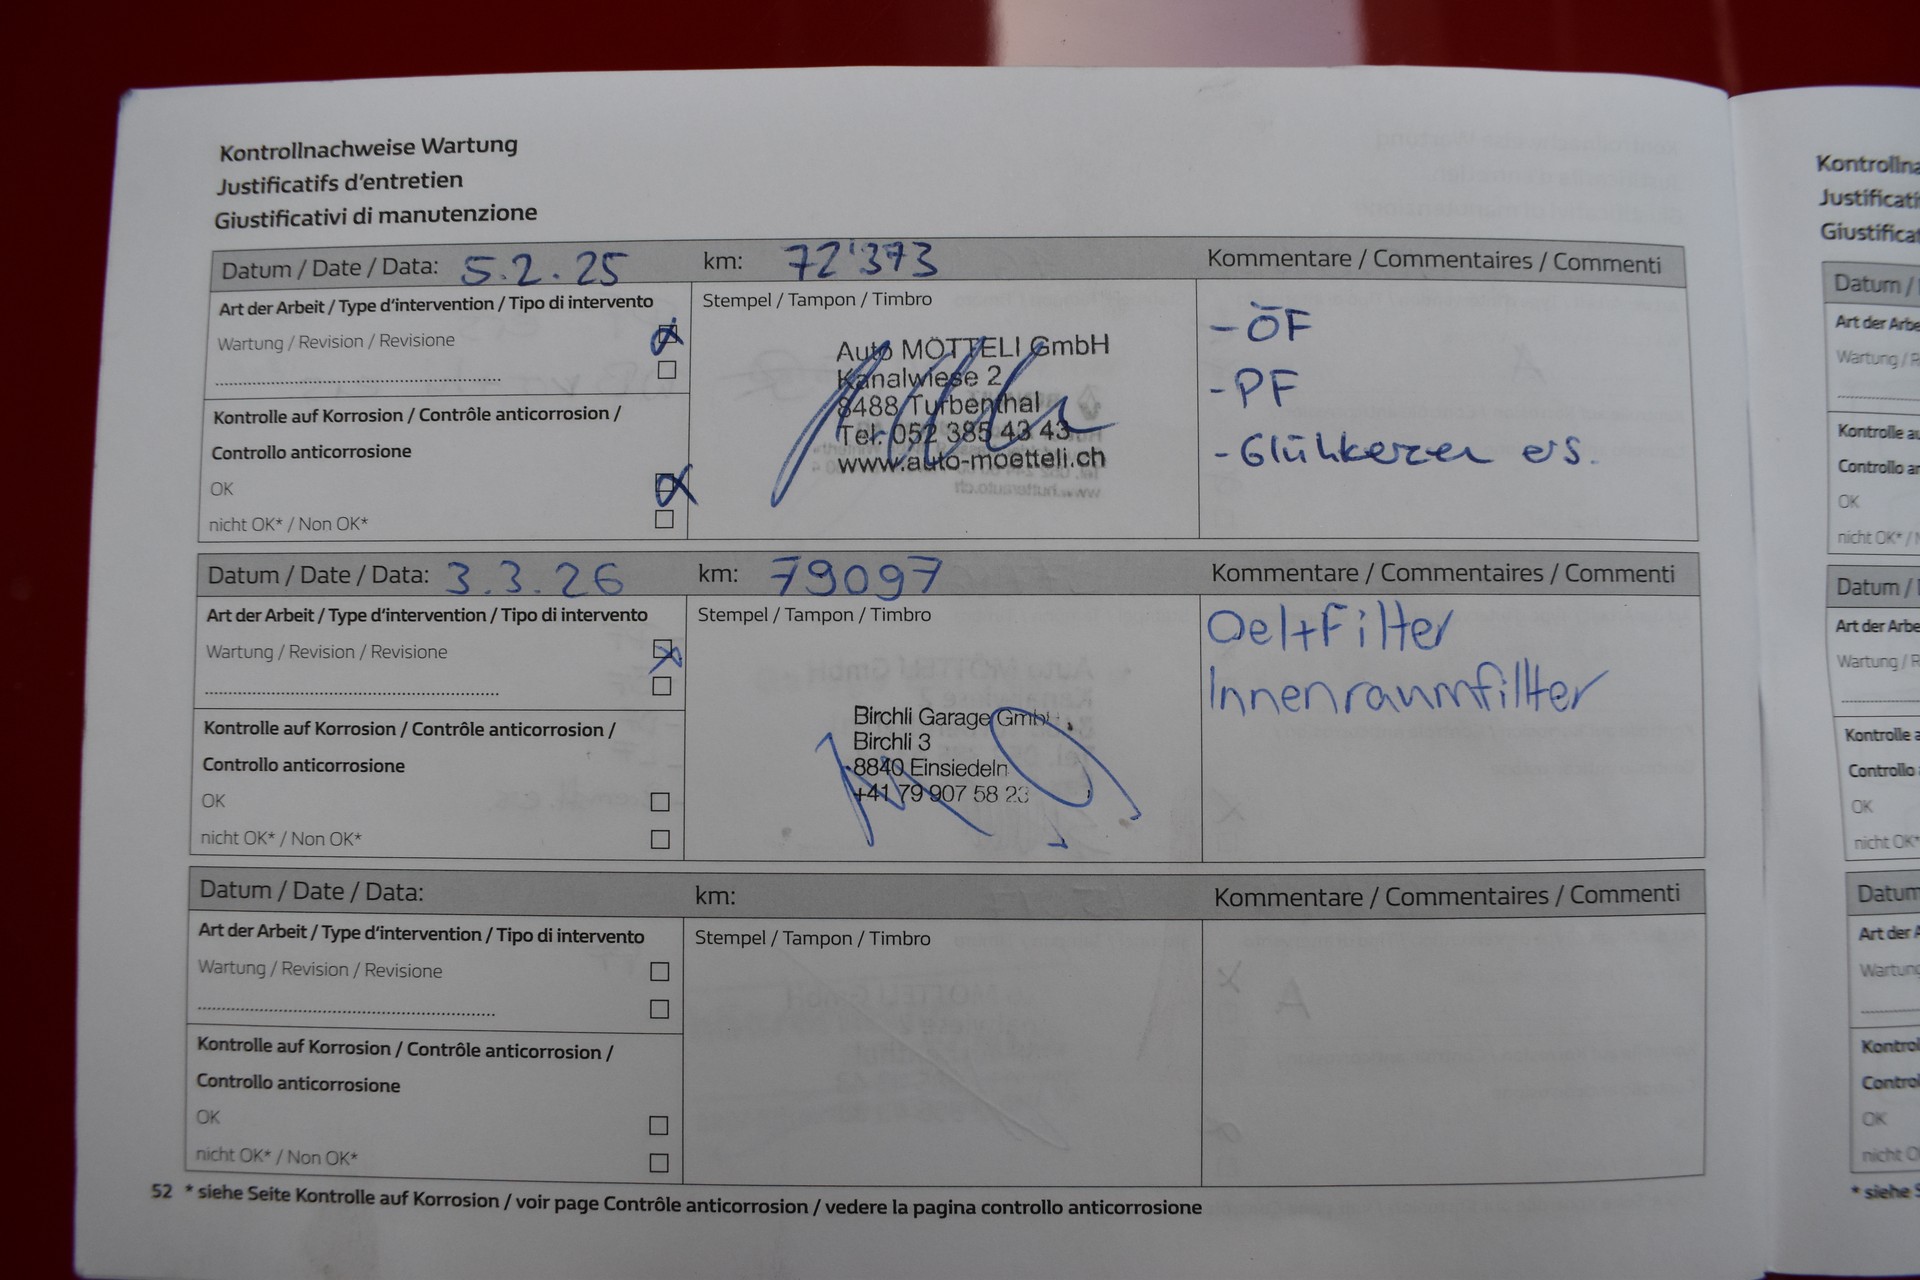 Kontrollnachweise Wartung
Justificatifs d'entretien
Giustificativi di manutenzione
Datum / Date / Data: 5.2.25 km: 72'373 Kommentare / Commentaires / Commenti
Art der Arbeit / Type d'intervention / Tipo di intervento
Wartung / Revision / Revisione
Kontrolle auf Korrosion / Contrôle anticorrosion /
Controllo anticorrosione
OK
nicht OK* / Non OK*
Stempel / Tampon / Timbro
Auto MÖTTELI GmbH
Kanalwiese 2
8488 Turbenthal
Tel. 052 385 43 43
www.auto-moetteli.ch
- ÖF
- PF
- Glühkerzen ers.
Datum / Date / Data: 3.3.26 km: 79097 Kommentare / Commentaires / Commenti
Art der Arbeit / Type d'intervention / Tipo di intervento
Wartung / Revision / Revisione
Kontrolle auf Korrosion / Contrôle anticorrosion /
Controllo anticorrosione
OK
nicht OK* / Non OK*
Stempel / Tampon / Timbro
Birchli Garage GmbH
Birchli 3
8840 Einsiedeln
+41 79 907 58 23
Oel+Filter
Innenraumfillter
Datum / Date / Data: km: Kommentare / Commentaires / Commenti
Art der Arbeit / Type d'intervention / Tipo di intervento
Wartung / Revision / Revisione
Kontrolle auf Korrosion / Contrôle anticorrosion /
Controllo anticorrosione
OK
nicht OK* / Non OK*
Stempel / Tampon / Timbro
52 * siehe Seite Kontrolle auf Korrosion / voir page Contrôle anticorrosion / vedere la pagina controllo anticorrosione
Datum /
Art der
Wartung /
OK
nicht OK* /
Datum /
Art der
Wartung /
Kontrolle
Controllo
OK
nicht OK*
Datum
Art der
OK
* siehe